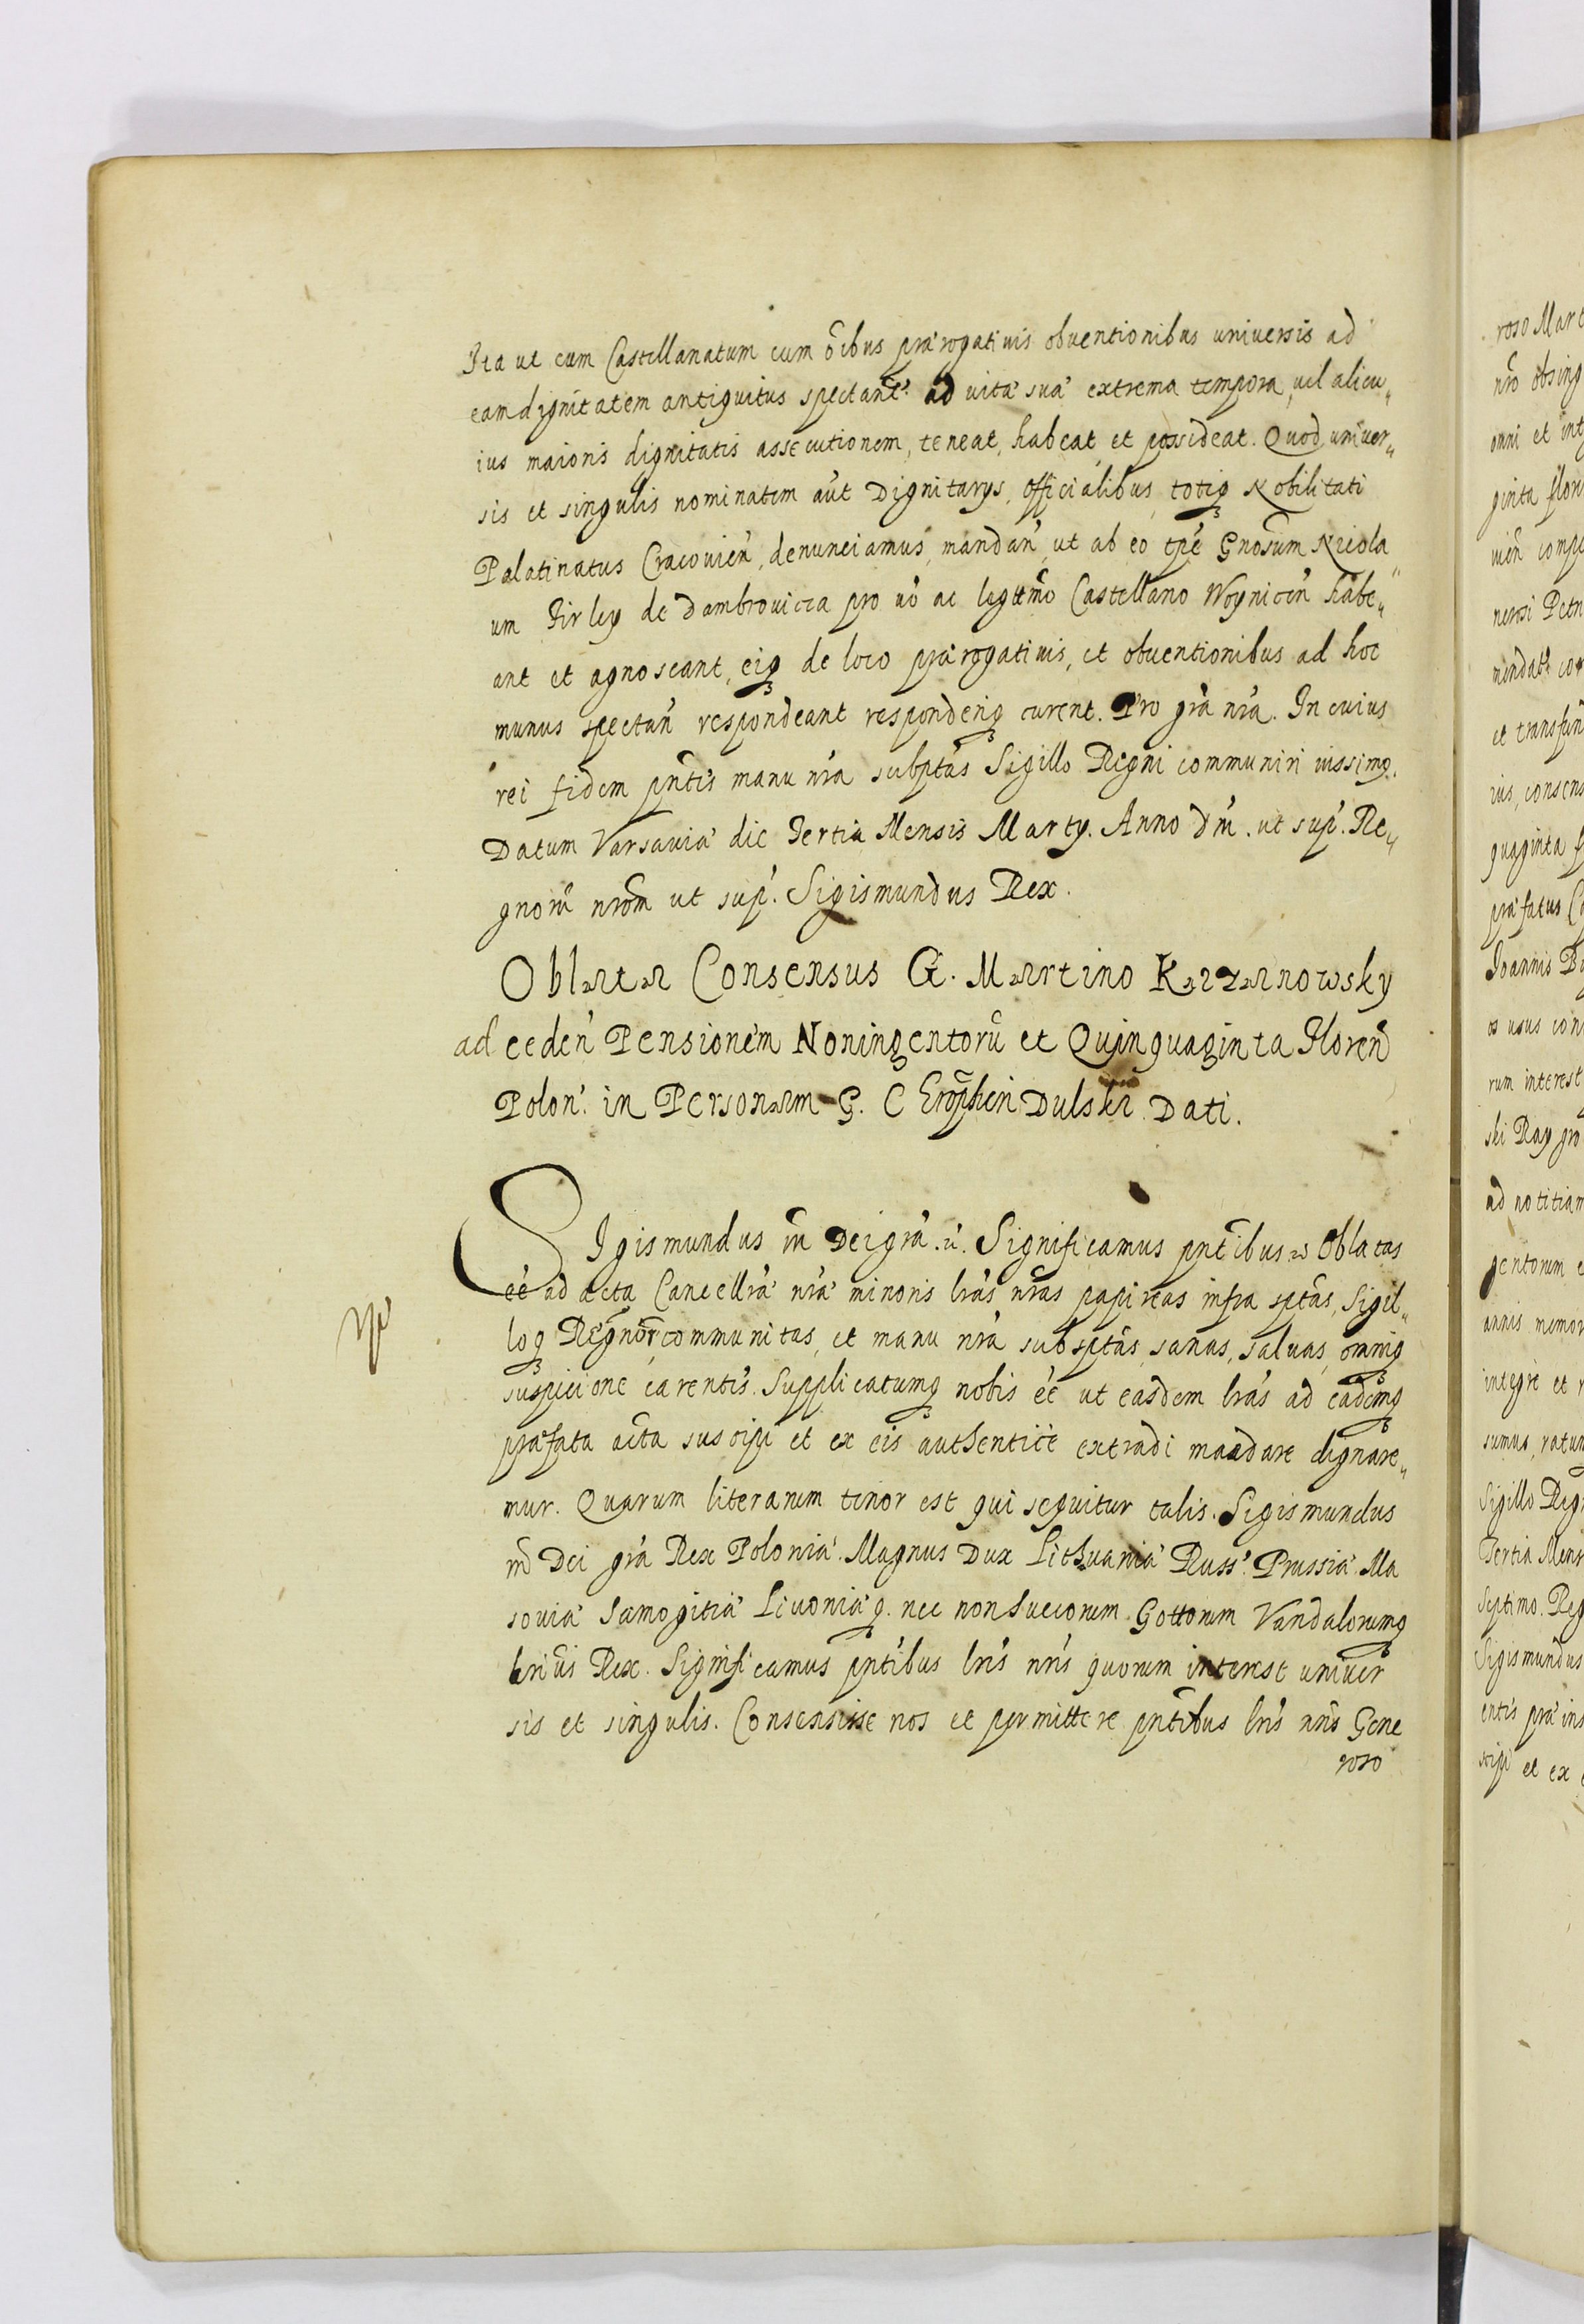 Ita ut eum Castellanatum cum oîbus prærogatiuis obuentionibus uniuersis ad
eam dignitatem antiquitus spectanê: ad uitæ suæ extrema tempora, uel alicu„
ius maioris dignitatis assecutionem, teneat, habeat, et possideat. Quod uniuer„
sis et singulis nominatem aút Dignitarys, Officialibus, totiq Nobilitati
Palatinatus Cracouień, denunciamus, mandań, ut ab eo tpé Gnosum Nicola„
um Firley de Dambrouicza pro uô ac legitmô Castellano Woynicéń habe„
ant et agnoscant, eiq de loco prærogatiuis, et obuentionibus ad hoc
munus spectań respondeant responderiq curent. Pro grâ nrâ. In cuius
rei fidem pntis manu nrâ subptâs Sigillo Regni communiri iussimq.
Datum Varsauiæ die Tertia Mensis Marty. Anno Dnî. ut sup. Re„
gnorû nrôm ut sup. Sigismundus Rex.
Oblata Consensus G. Martino Kazanowsky
ad ceden Pensionem Noningentorû et Quinquaginta Floreń
Polon: in Personam G. C Dulski Dati.
SIgismundus Dei grâ. Significamus pntîbus Oblatas
eê ad acta Cancellræ nræ minoris lrâs nrâs papireas infra sptâs, Sigil„
loq Regnor communitas, et manu nrâ subsptâs sanas, saluas, omniq
suspicione carentis. Supplicatumq nobis eê ut easdem lrâs ad eademq
præfata acta suscipi et ex eis authenticê extradi mandare dignare„
mur. Quarum literarum tenor est qui sequitur talis. Sigismundus
Dei grâ Rex Poloniæ. Magnus Dux Lithuaniæ Russ: Prussiæ. Ma
souiæ Samogitiæ Liuoniæq. nec non Suecorum Gottorum Vandalorumq
Rex. Significamus pntîbus lrîs nrîs quorum interest uniuer
sis et singulis. Consensisse nos et permittere pntîbus lrîs nrîs Gene
roso